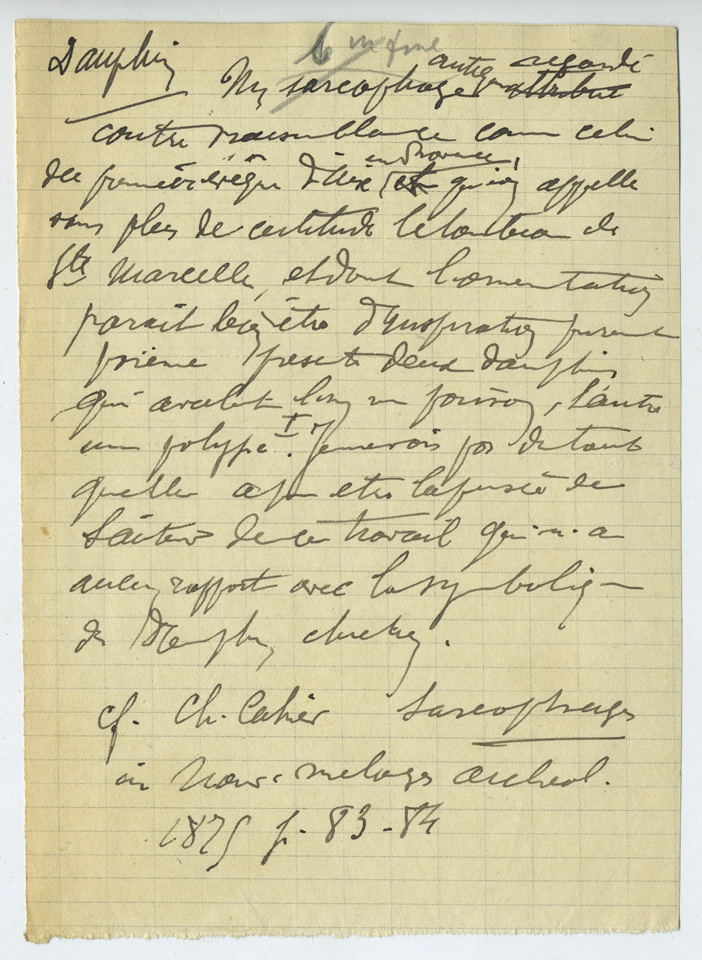 Dauphin
6 in fine
Un sarcophage antique regardé attribué
contre vraisemblance comme celui
des premiers évêques d'Aix en Provence, et qu'on appelle
sans plus de certitude le tombeau de
Ste Marcelle, et dont l'ornementation
parait bien être d'inspiration purement
païenne présente deux dauphins
qui avalent l'un un poisson, l'autre
un polype. Je ne vois pas du tout
quelle a pu etre la pensée de
l'auteur de ce travail qui n'a
aucun rapport avec la symbolique
du Dauphin chretien.
cf. Ch. Cahier Sarcophages
in Nouv. melanges archeol.
1875 p. 83-84